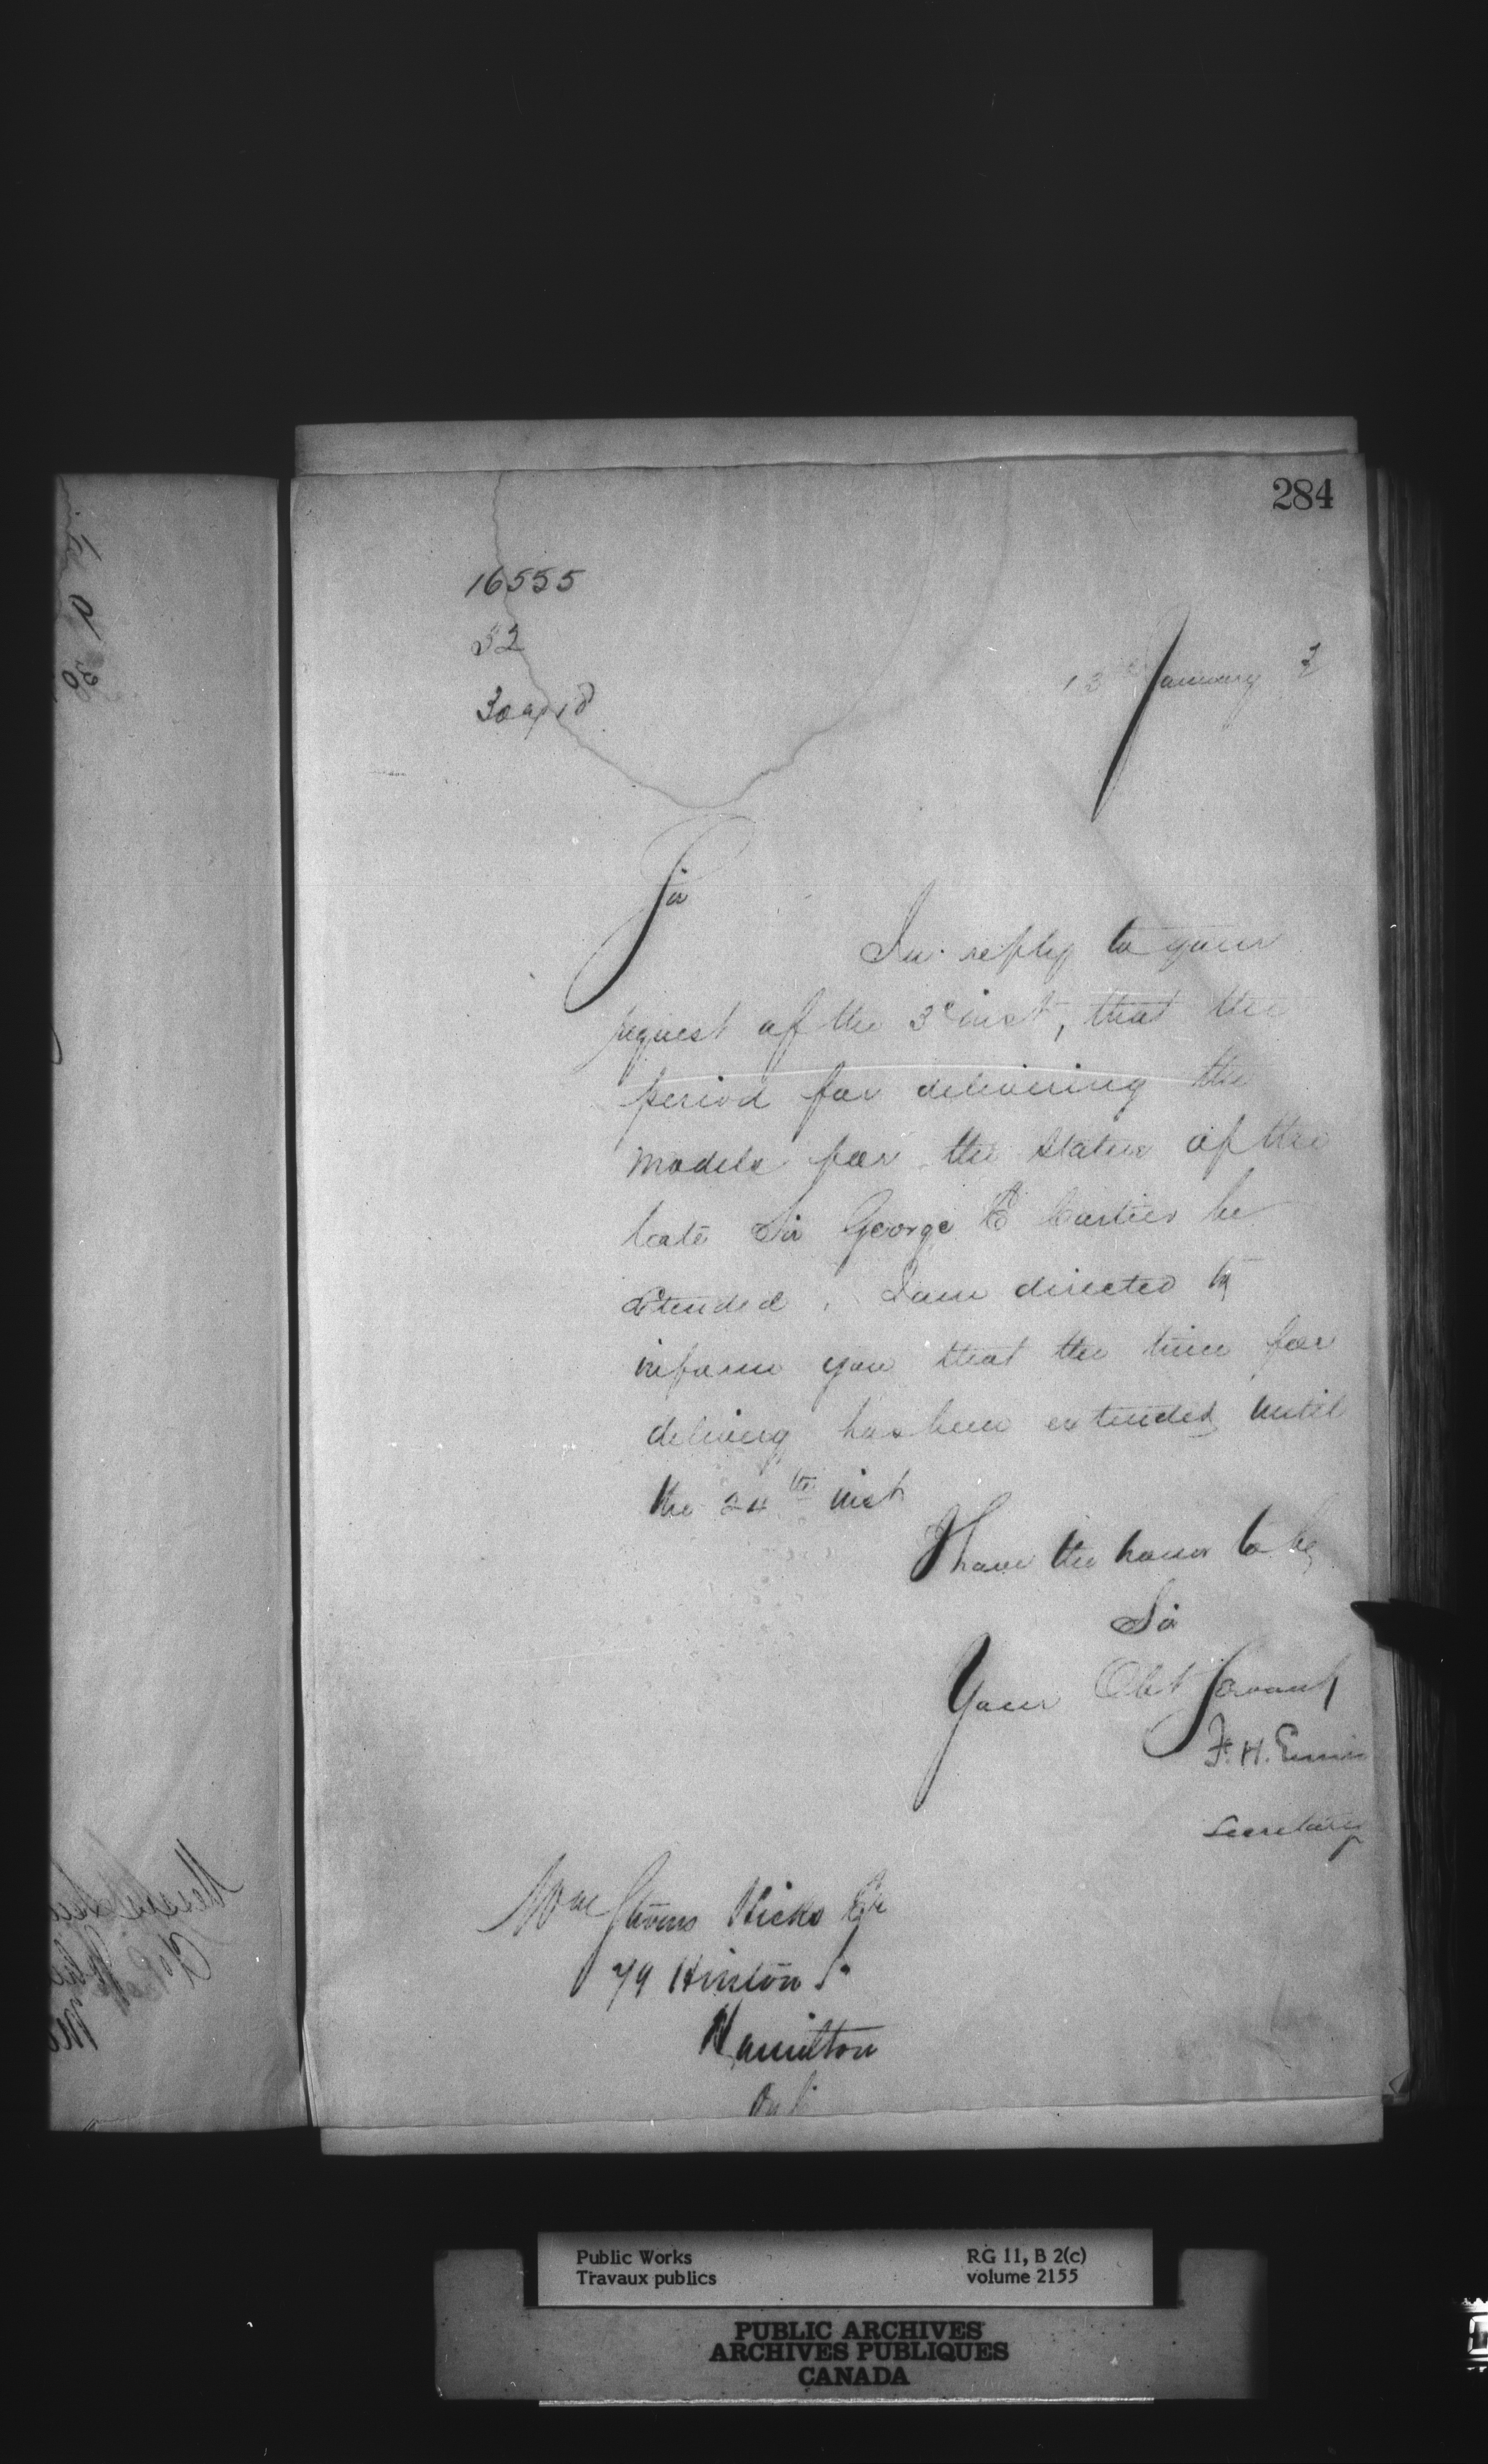 284
16555
32
13th January 3
Sir
In reply to your
request of the 3d inst, that the
period for delivering the
models for the statue of the
late Sir George E Cartier be
extended. I am directed to
inform you that the time for
delivery has been extended until
the 24th inst
I have the honor to be
Sir
Your Obt Servant
F. H. Ennis
Secretary
Wm Stevens Hicks Esq
79 Hinston St
Hamilton
Ont
Public Works RG 11, B 2(c)
Travaux publics volume 2155
PUBLIC ARCHIVES
ARCHIVES PUBLIQUES
CANADA